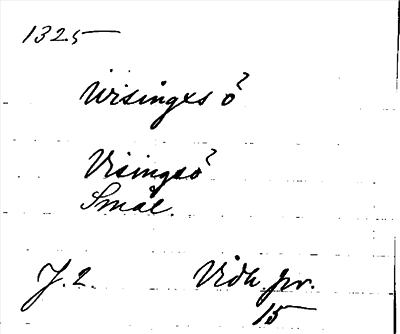 1325
Wisingxs ö
Visingsö
Smål.
J. 2. Vidh. pr.
15